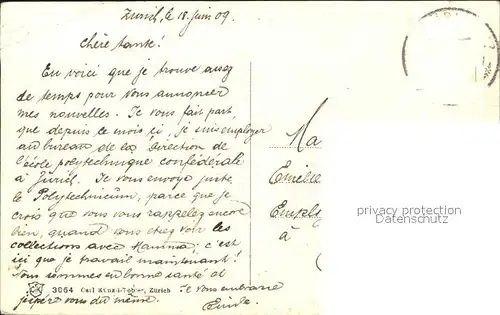 Zurich, le 18. Juin 09.
Chère tante!
En voici que je trouve assez
de temps pour vous annoncer
mes nouvelles. Je vous fait part,
que depuis le mois ici, je suis employer
au bureau de la Direction de
l'école polytechnique confédérale
à Zürich. Je vous envoye juste
le Polytechnicum, parce que je
crois que vous vous rappelez encore
bien, quand vous etiez voir les
collections avec Mamma; c'est
ici que je travail maintenant!
Nous sommes en bonne santé et
j'espère vous du même.
Je vous embrasse
Emile.
Ma
Emilie
Employ
à
privacy protection
3064 Carl Künzli-Tobler, Zürich